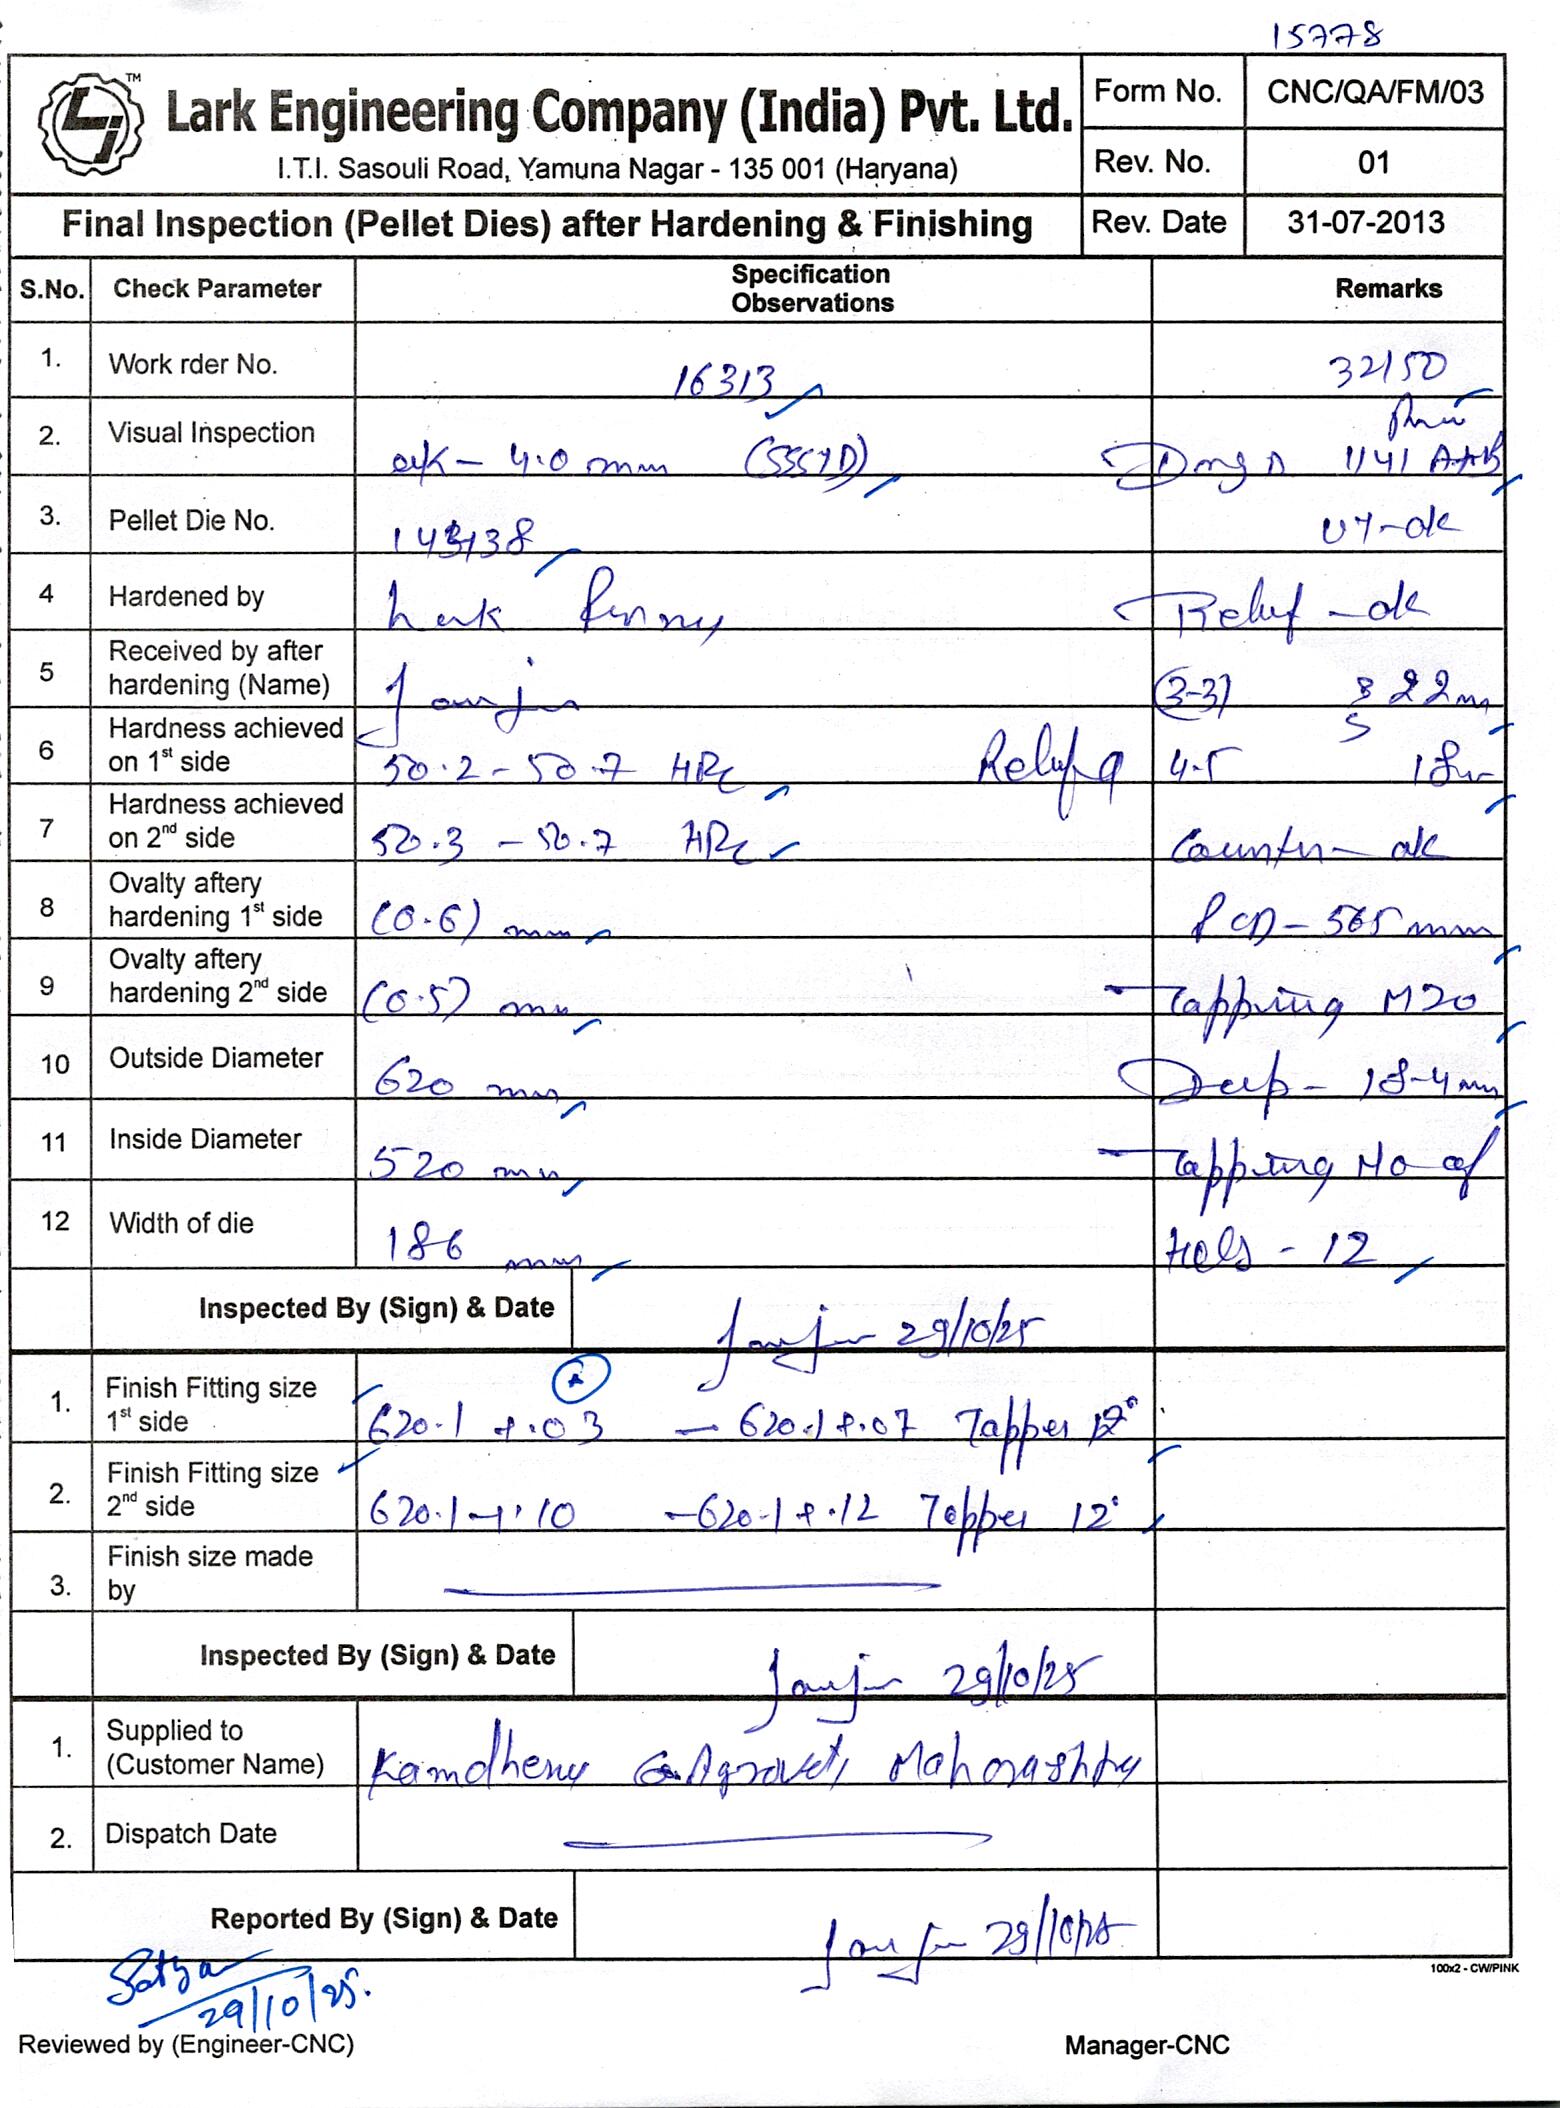 15778
Lark Engineering Company (India) Pvt. Ltd.
TM
I.T.I. Sasouli Road, Yamuna Nagar - 135 001 (Haryana)
Form No. CNC/QA/FM/03
Rev. No. 01
Final Inspection (Pellet Dies) after Hardening & Finishing
Rev. Date 31-07-2013
S.No. Check Parameter Specification Observations Remarks
1. Work rder No. 16313 32150
2. Visual Inspection ok - 4.0 mm 1141 A+B
3. Pellet Die No. UT-ok
4 Hardened by Relief - ok
5 Received by after hardening (Name) (3-3) 22mm
6 Hardness achieved on 1st side 50.2 - 50.7 HRC Relief 4.5 18mm
7 Hardness achieved on 2nd side 50.3 - 50.7 HRC Counter - ok
8 Ovalty aftery hardening 1st side (0.6) mm PCD - 565 mm
9 Ovalty aftery hardening 2nd side (0.5) mm Tapping M20
10 Outside Diameter 620 mm Deep - 18-4mm
11 Inside Diameter 520 mm Tapping No of
12 Width of die 186 mm Hols - 12
Inspected By (Sign) & Date 29/10/25
1. Finish Fitting size 1st side 620.1 +.03 - 620.1 +.07 Tapper 12°
2. Finish Fitting size 2nd side 620.1 +.10 - 620.1 +.12 Tapper 12°
3. Finish size made by
Inspected By (Sign) & Date 29/10/25
1. Supplied to (Customer Name) Kamdhenu Agrovet, Maharashtra
2. Dispatch Date
Reported By (Sign) & Date 29/10/25
100x2 - CW/PINK
29/10/25.
Reviewed by (Engineer-CNC) Manager-CNC